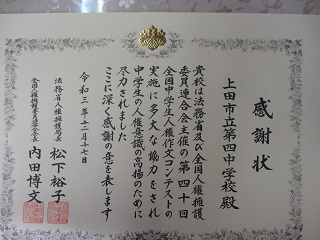 感謝状
上田市立第四中学校殿
貴校は法務省及び全国人権擁護
委員連合会主催の第四十回
全国中学生人権作文コンテストの
実施に多大な協力をされ
中学生の人権意識の高揚のために
尽力されました
ここに深く感謝の意を表します
令和三年十二月十七日
法務省人権擁護局長
松下裕子
全国人権擁護委員連合会長
内田博文